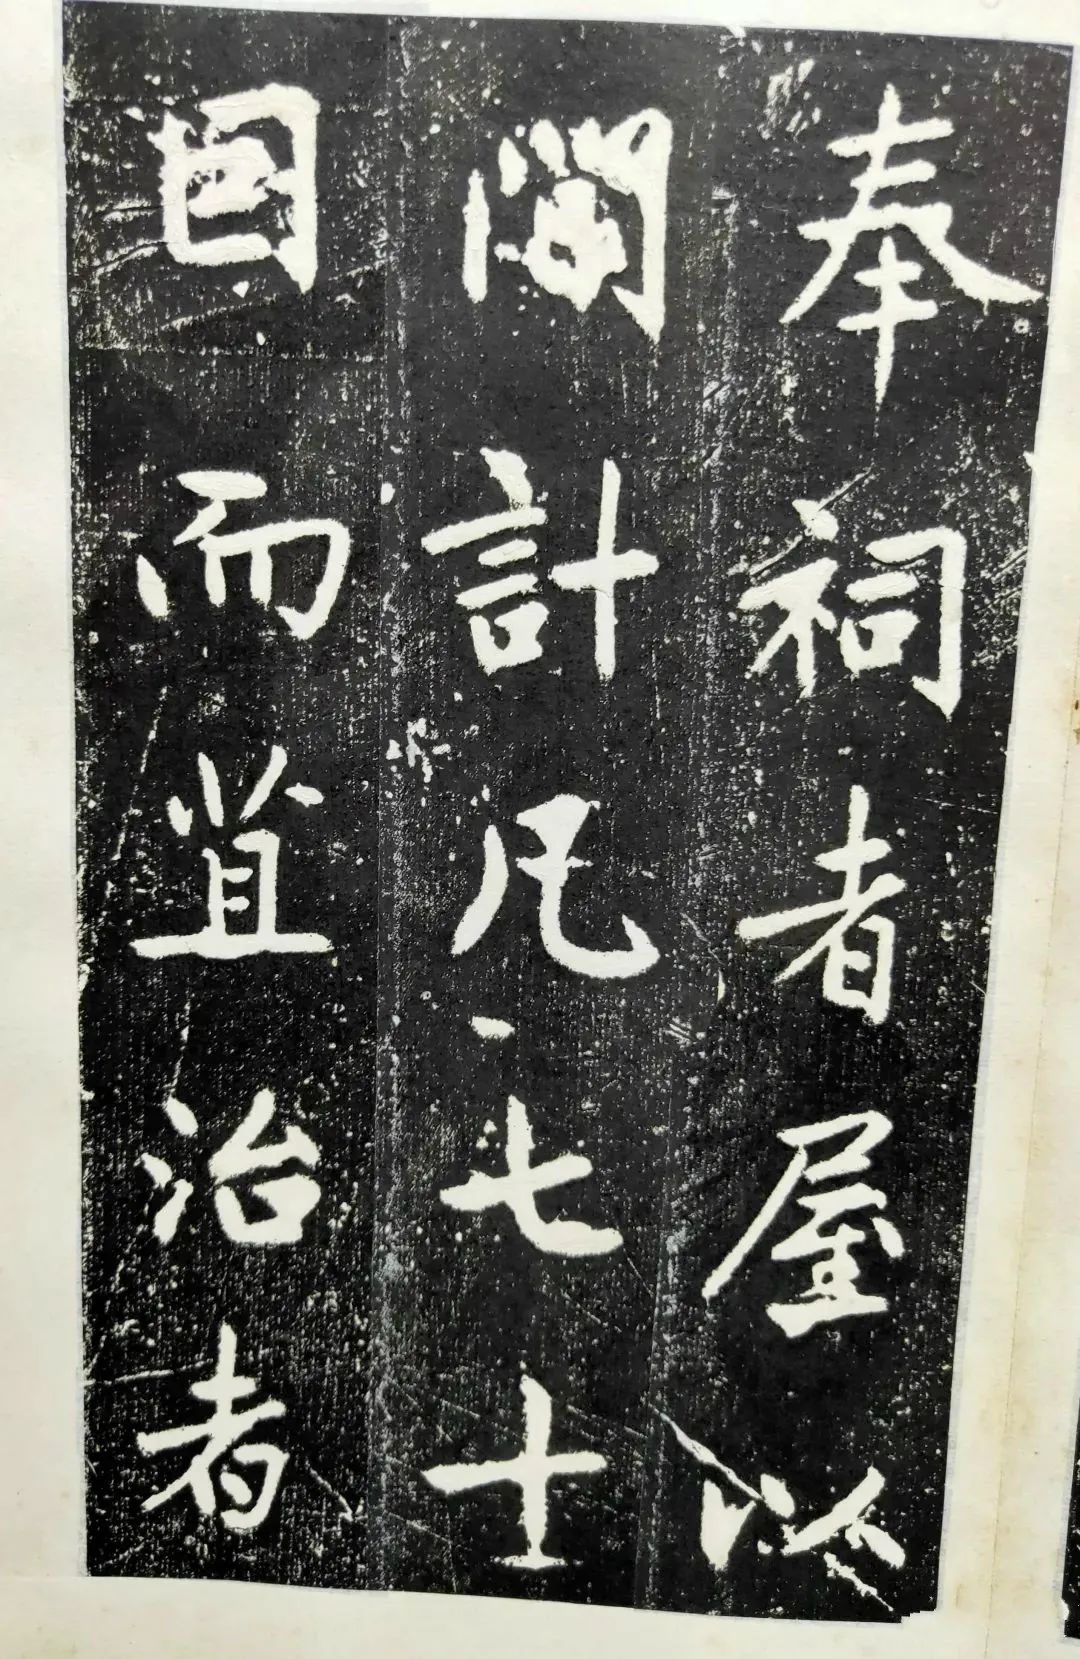 奉祠者屋以
間計凡七十
因而苴治者